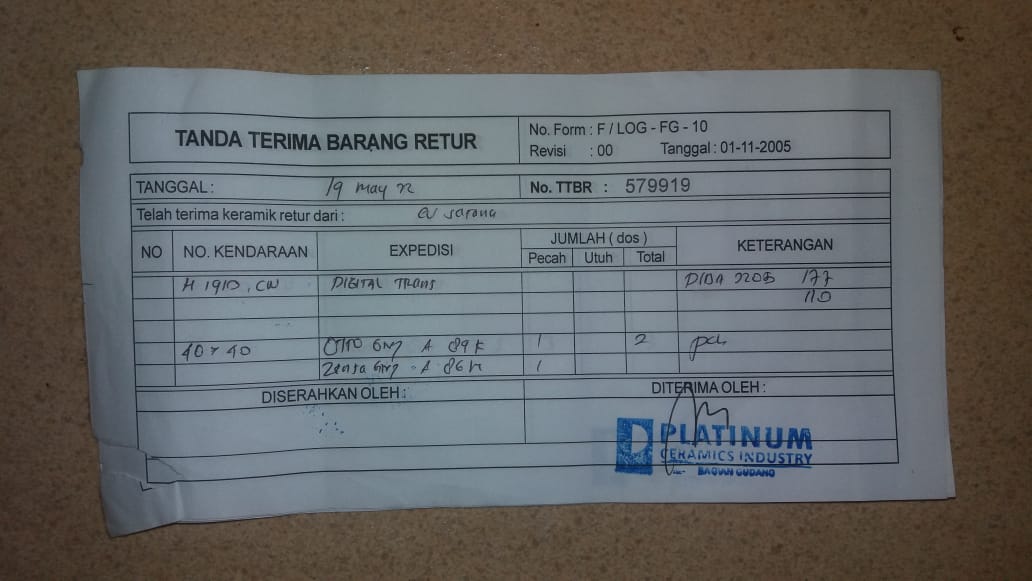 TANDA TERIMA BARANG RETUR
No. Form : F / LOG - FG - 10
Revisi : 00 Tanggal : 01-11-2005
TANGGAL : 19 may 22
No. TTBR : 579919
Telah terima keramik retur dari : cv sarana
NO NO. KENDARAAN EXPEDISI JUMLAH ( dos ) KETERANGAN
Pecah Utuh Total
H 1910, CW DIGITAL TRANS 2205 177
110
40 x 40 A 89 K 1 2
A 86 1
DISERAHKAN OLEH : DITERIMA OLEH :
PLATINUM
CERAMICS INDUSTRY
BAGIAN GUDANG